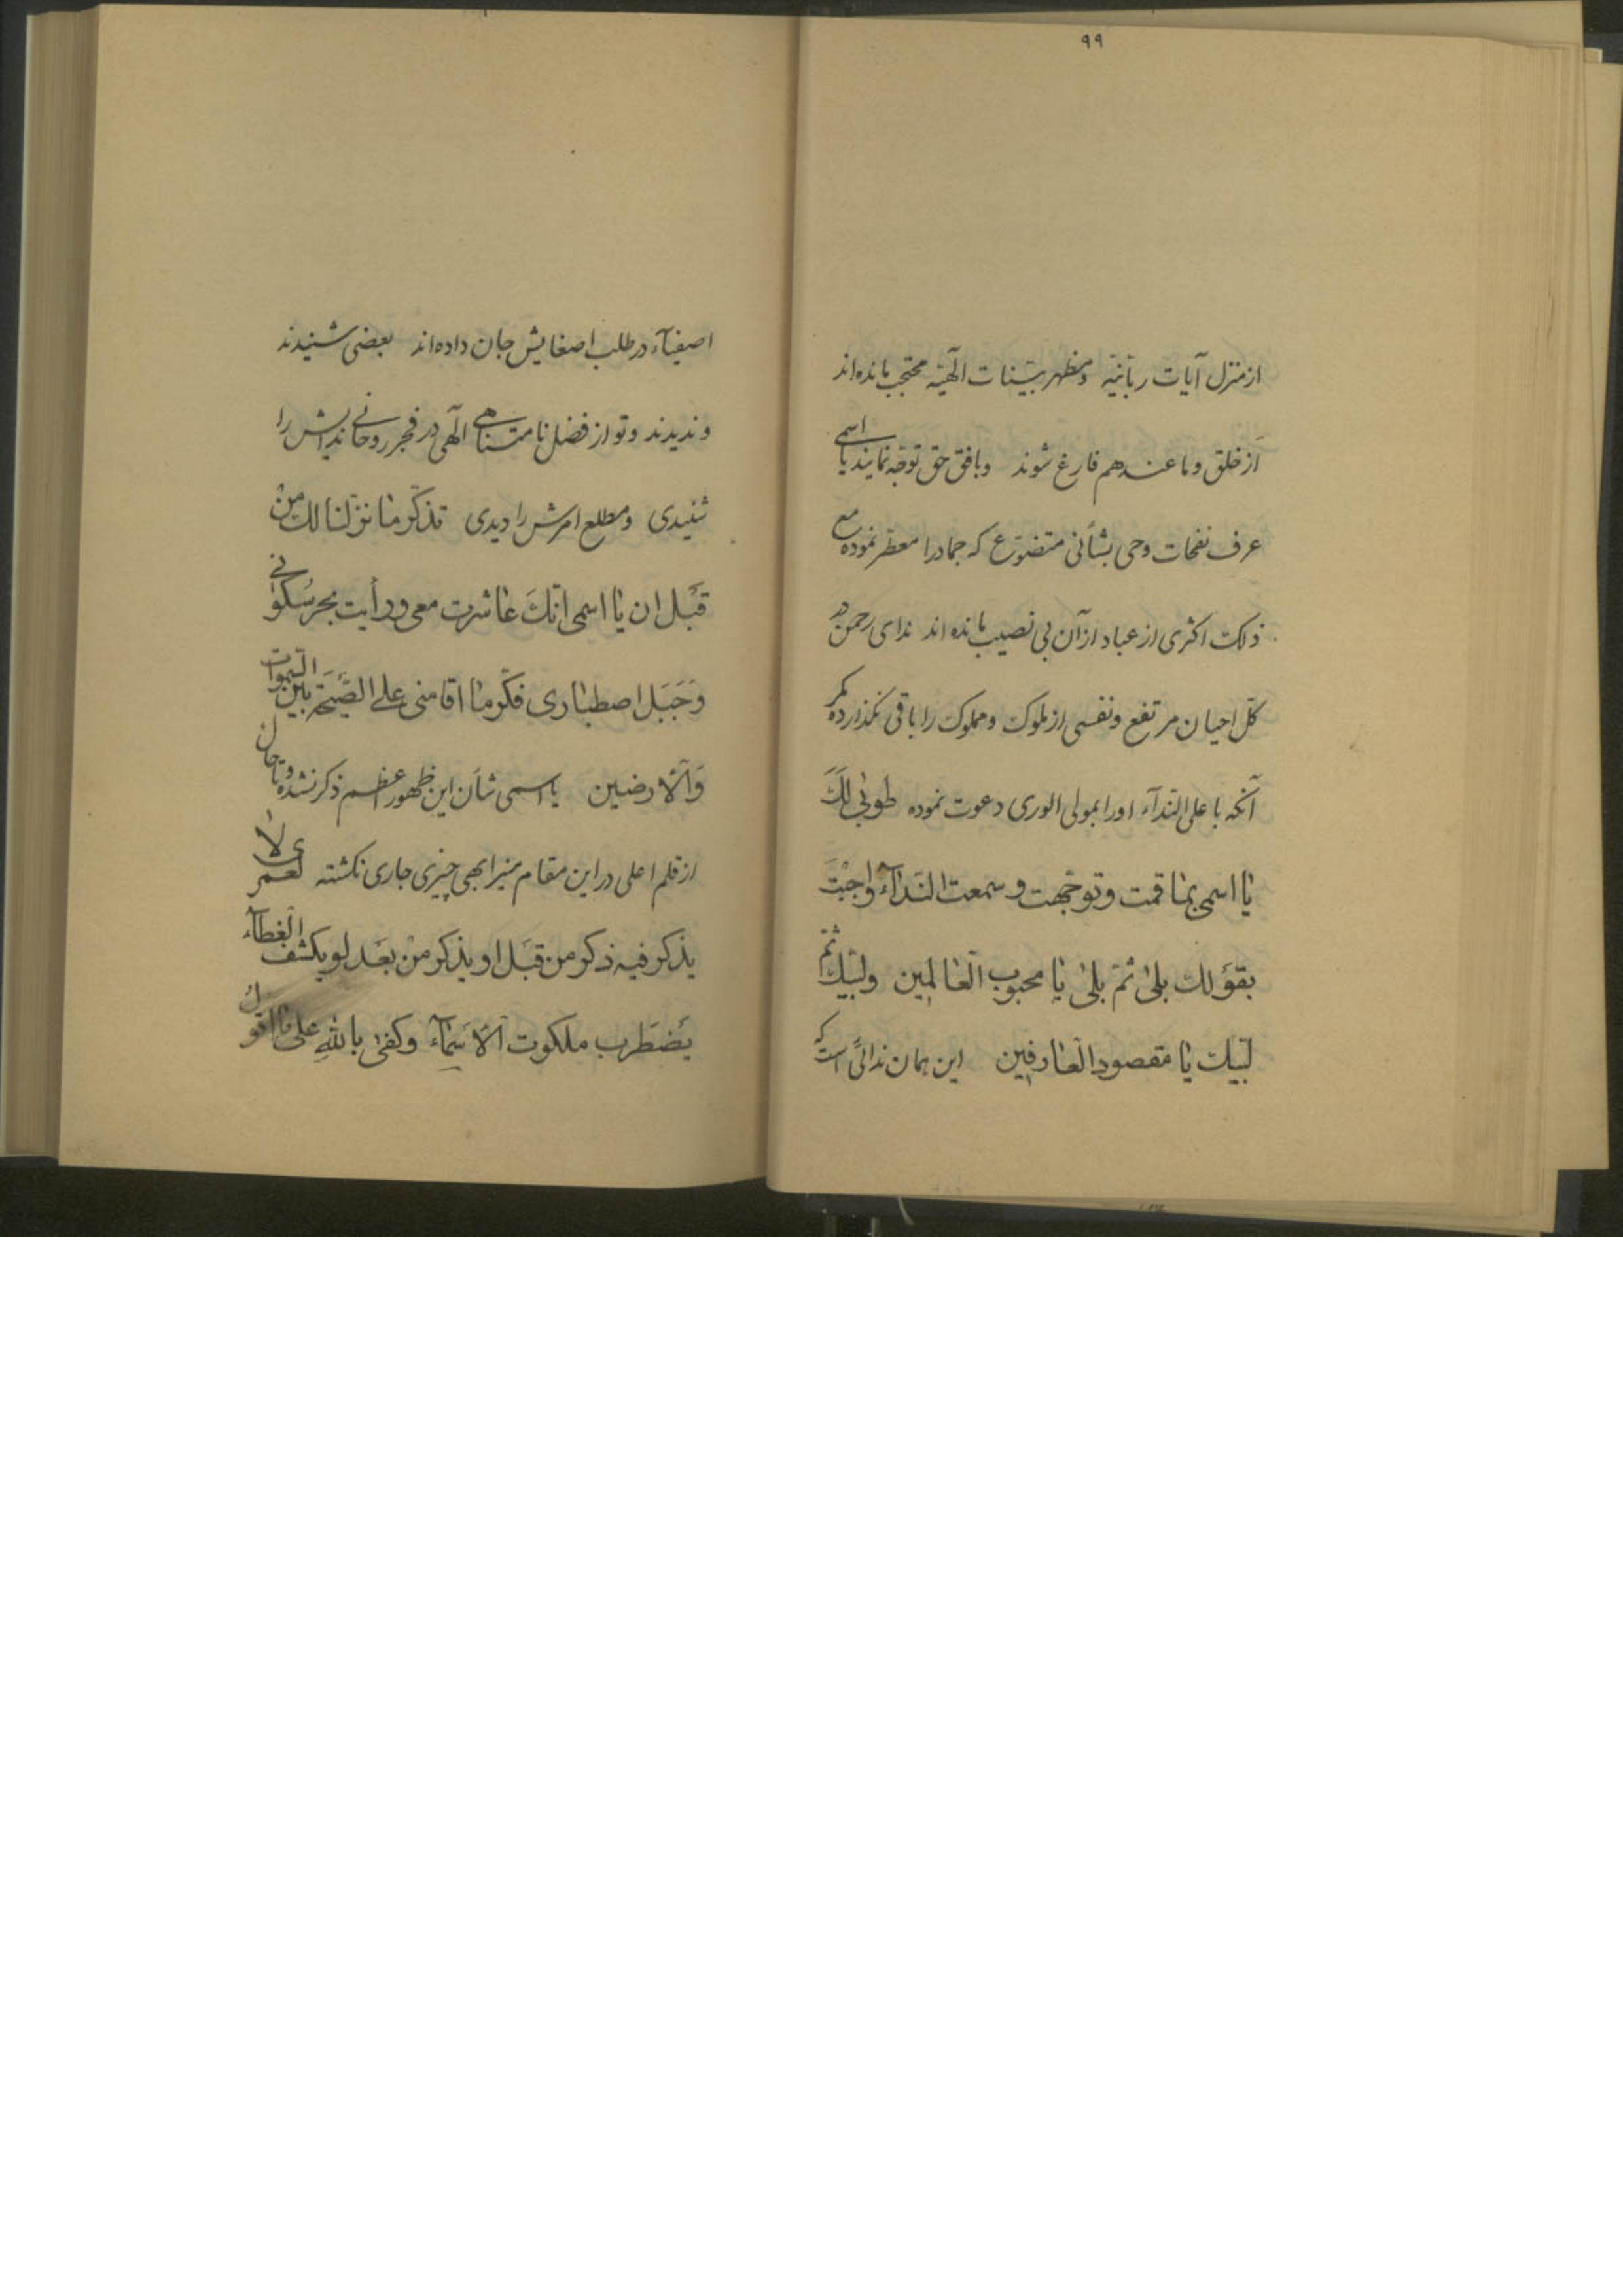 ٩٩
از منزل آیات ربّانیّه و مظهر بیّنات الهیّه محتجب مانده‌اند
از خلق و ما عندهم فارغ شوند و بافق حقّ توجّه نمایند یا اسمی
عرف نفحات وحی بشأنی متضوّع که جماد را معطّر نموده مع
ذلک اکثری از عباد از آن بی نصیب مانده اند ندای رحمن در
کلّ احیان مرتفع و نفسی از ملوک و مملوک را باقی نگذارده مگر
آنکه باعلی النّدآء او را بمولی الوری دعوت نموده طوبی لَکَ
یا اسمی بما قمت و توجّهت و سمعت النّدآء و اجبْتَ
بقولک بلی ثمّ بلی یا محبوب العالمین و لبّیک ثمّ
لبّیک یا مقصود العارفین این همان ندائی است که
اصفیآء در طلب اصغایش جان داده‌اند بعضی شنیدند
و ندیدند و تو از فضل نامتناهی الهی در فجر روحانی ندایش را
شنیدی و مطلع امرش را دیدی تذکّر ما نزّلنا لک من
قبل ان یا اسمی انّک عاشرت معی و رأیت بحر سکونی
و جَبَل اصطباری فکّر ما اقامنی علی الصّیحة بین السّموات
و الارضین یا اسمی شأن این ظهور اعظم ذکر نشده و تا حال
از قلم اعلی در این مقام منیر ابهی چیزی جاری نگشته لعمری لا
یذکر فیه ذکر من قبل او یذکر من بعد لو یکشف الغطآء
یضطرب ملکوت الاسمآء و کفی بالله علی ما اقولُ